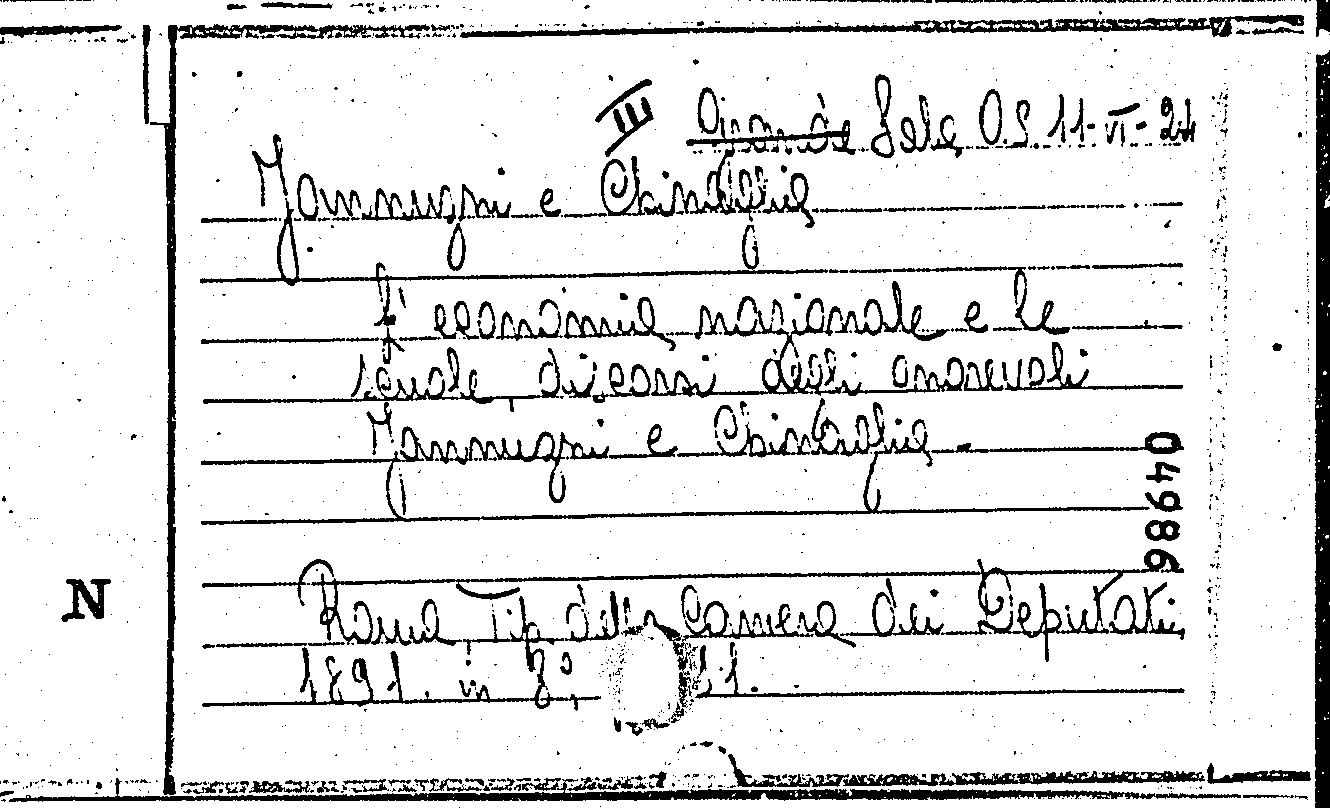 III Grande Sala O.S. 11-VI-24
Jannuzzi e Chinaglia
L' economia nazionale e le
scuole, discorsi degli onorevoli
Jannuzzi e Chinaglia -
04986
N
Roma, Tip. della Camera dei Deputati,
1891. in 8°, 11.